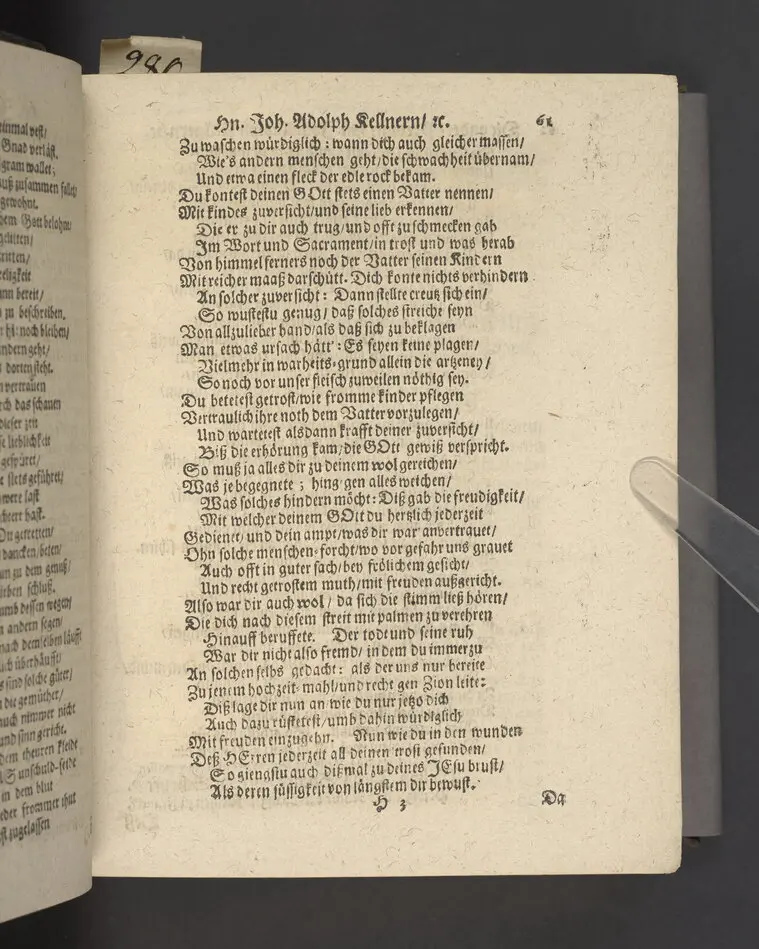 980
einmal vest/
Gnad verläst.
gram wallet;
muß zusammen fället
gewohnt.
dem Gott belohnt
gelitten/
stritten/
eligkeit
ann bereit/
zu beschreiben.
noch bleiben/
ndern geht/
dorten steht.
vertrauen
rch das schauen
dieser zeit
se lieblichkeit
gespüret/
e stets geführet/
were last
hafft.
Du getretten/
dancken/beten/
un zu dem genuß/
ieben schluß.
umb dessen wegen/
n andern segen/
nach demselben läufft
ich überhäufft/
s sind solche güter/
n die gemüther/
auch nimmer nicht
und sinn gericht.
dem theuren kleide
unschuld-seide
in dem blut
eder frommer thut
st zugelassen
Hn. Joh. Adolph Kellnern/ ꝛc. 61
Zu waschen würdiglich: wann dich auch gleicher massen/
Wie's andern menschen geht/ die schwachheit übernam/
Und etwa einen fleck der edle rock bekam.
Du kontest deinen GOtt stets einen Vatter nennen/
Mit kindes zuversicht/und seine lieb erkennen/
Die er zu dir auch trug/und offt zu schmecken gab
Im Wort und Sacrament/in trost und was herab
Von himmel ferners noch der Vatter seinen Kindern
Mit reicher maaß darschütt. Dich konte nichts verhindern
An solcher zuversicht: Dann stellte creutz sich ein/
So wustestu genug/ daß solches streiche seyn
Von allzulieber hand/als daß sich zu beklagen
Man etwas ursach hätt': Es seyen keine plagen/
Vielmehr in warheits-grund allein die artzeney/
So noch vor unser fleisch zuweilen nöthig sey.
Du betetest getrost/wie fromme kinder pflegen
Vertraulich ihre noth dem Vatter vorzulegen/
Und wartetest alsdann krafft deiner zuversicht/
Biß die erhörung kam/die GOtt gewiß verspricht.
So muß ja alles dir zu deinem wol gereichen/
Was je begegnete; hingegen alles weichen/
Was solches hindern möcht: Diß gab die freudigkeit/
Mit welcher deinem GOtt du hertzlich jederzeit
Gedienet/ und dein ampt/was dir war anvertrauet/
Ohn solche menschen-forcht/wo vor gefahr uns grauet
Auch offt in guter sach/bey frölichem gesicht/
Und recht getrostem muth/mit freuden außgericht.
Also war dir auch wol/ da sich die stimm ließ hören/
Die dich nach diesem streit mit palmen zu verehren
Hinauff beruffete. Der tod und seine ruh
War dir nicht also fremd/ in dem du immerzu
An solchen selbs gedacht: als der uns nur bereite
Zu jenem hochzeit-mahl/und recht gen Zion leite:
Diß lage dir nun an wie du nur jetzo dich
Auch dazu rüstetest/umb dahin würdiglich
Mit freuden einzugehn. Nun wie du in den wunden
Deß HErren jederzeit all deinen trost gefunden/
So giengstu auch dißmal zu deines JEsu brust/
Als deren süssigkeit von längstem dir bewust.
H 3 Da